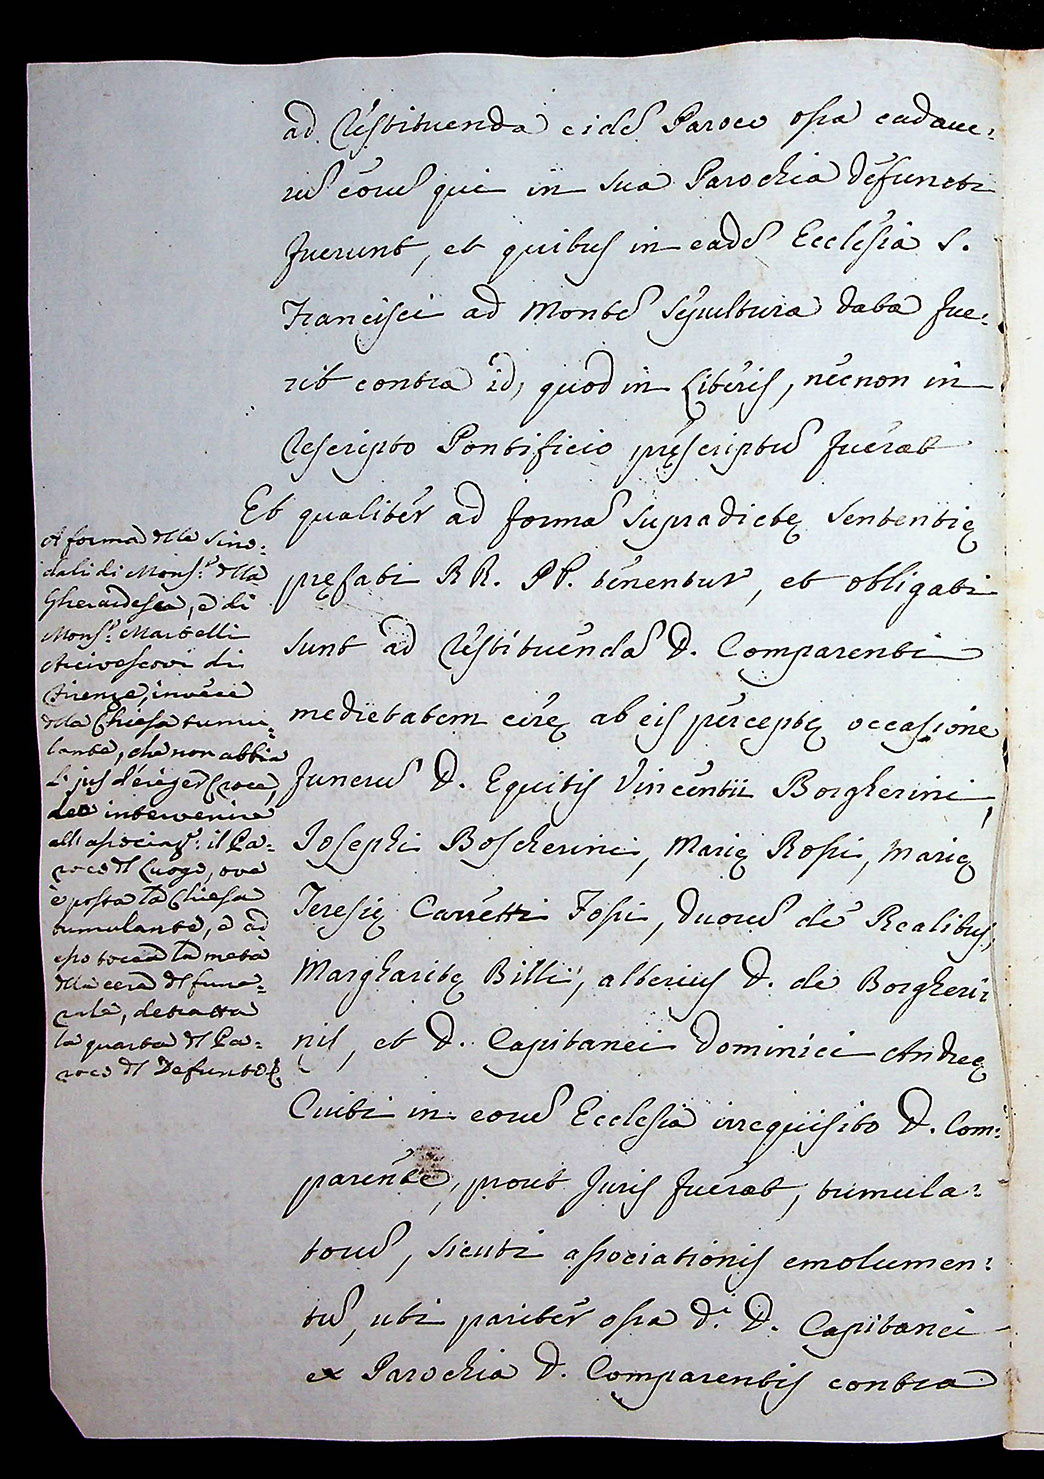 ad restituenda eidẽ Paroco ossa cadave:
rũ eorũ qui in sua Parochia defuncti
fuerunt, et quibus in eadẽ Ecclesia S.
Francisci ad Montẽ sepultura data fue:
rit contra id, quod in Literis, necnon in
Rescripto Pontificio pręscriptũ fuerat
Et qualiter ad formã supradictę sententię
pręfati RR. PP. tenentur, et obligati
sunt ad restituendã D. Comparenti
medietatem cerę ab eis perceptę occasione
funerũ D. Equitis Vincentii Borgherini,
Josephi Boscherini, Marię Rossi, Marię
Teresię Carretti Fossi, duorũ de Realibus,
Margharitę Billii, alterius D. de Borgheri:
nis, et D. Capitanei Dominici Andreę
Cuiti in eorũ Ecclesia irrequisito D. Com:
parente, prout Juris fuerat, tumula:
torũ, sicuti associationis emolumen:
tũ, uti pariter ossa d.i D. Capitanei
ex Parochia D. Comparentis contra
A forma dlle Sino:
dali di Mons.r dlla
Gherardesca, e di
Mons.r Martelli
Arcivescovi di
Firenze, invece
dlla Chiesa tumu:
lante, che non abbia
il jus d'eriger Croce,
dee intervenire
all'associaz.e il Pa:
roco dl luogo, ove
è posta la Chiesa
tumulante, e ad
esso tocca la metà
dlla cera dl fune:
rale, detratta
la quarta dl Pa:
roco dl Defunto